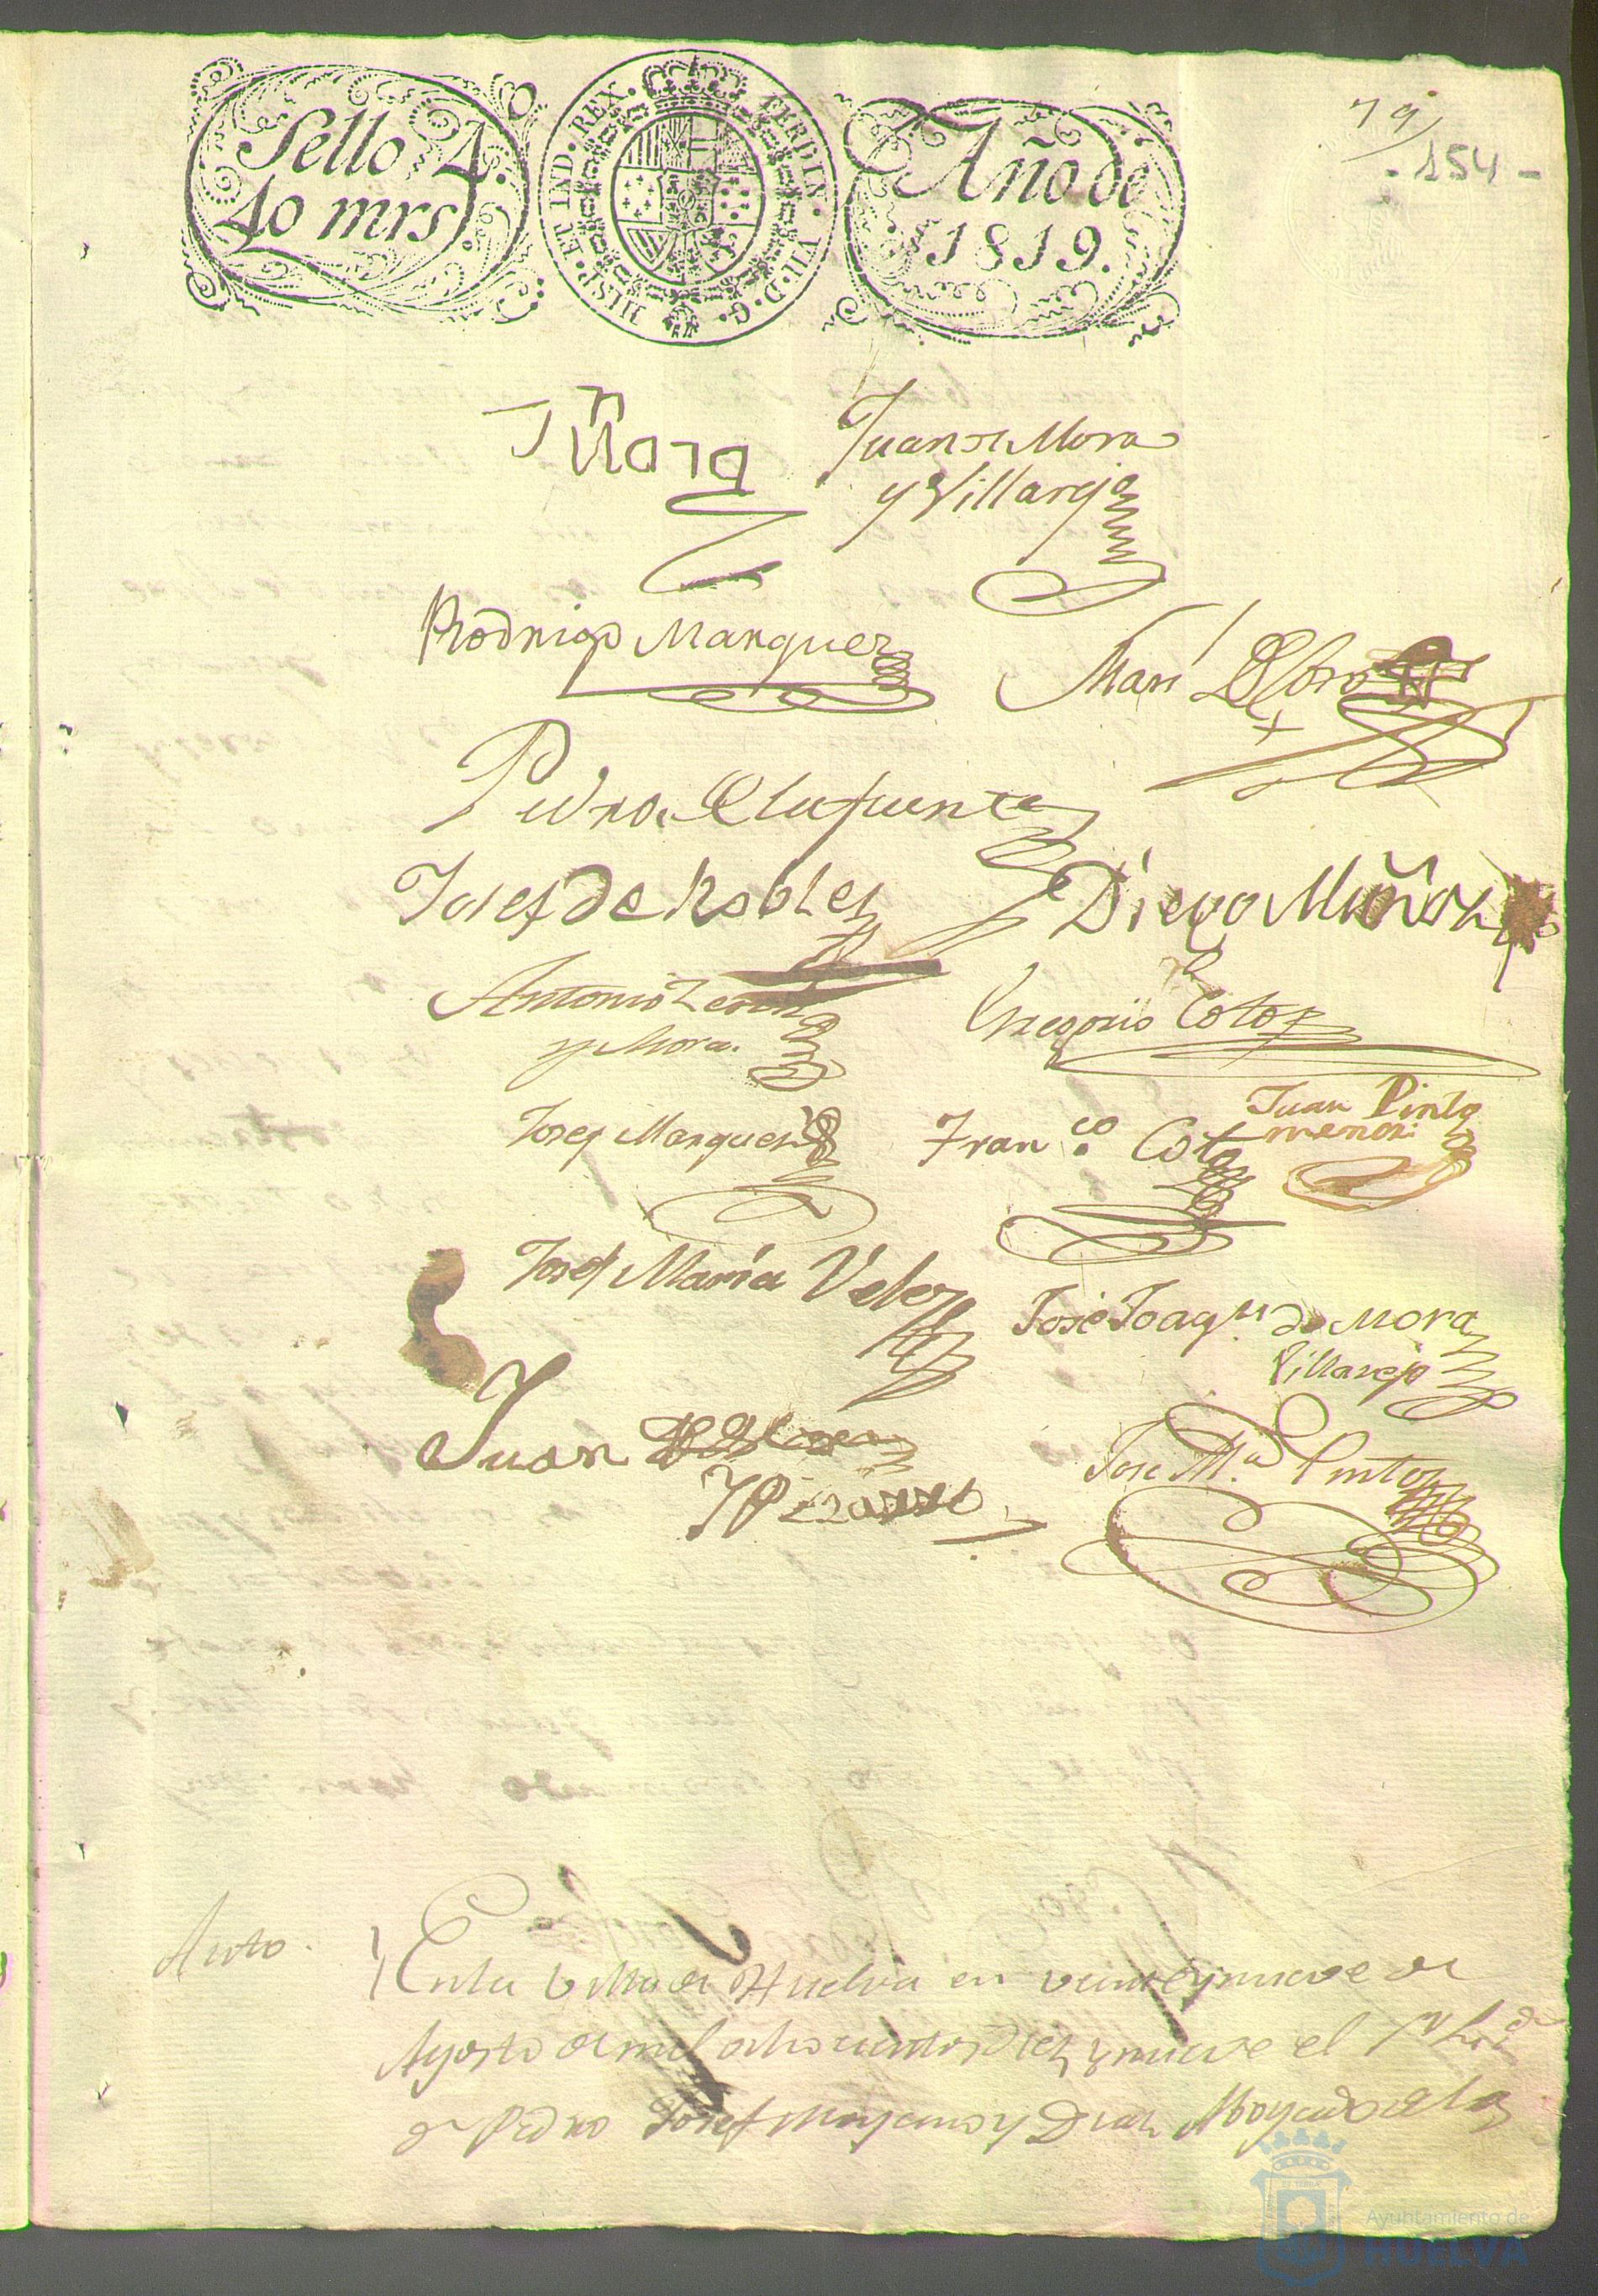 Sello 4.
40 mrs.
HISP. ET IND. REX. FERDIN. VII. D. G.
Año de
1819.
79
- 154 -
Juan de Mora
y Villarejo
Rodrigo Marquez
Pedro de la Fuente
Josef de Robles
Diego Muñoz
Antonio Leon
y Mora.
Gregorio Coto
Josef Marquez
Fran.co Coto
Juan Pinto
menor.
Josef Maria Velez
José Joaqn. de Mora
Villarejo
Juan
Jose Ma. Pinto
Auto.
En la Villa de Huelva en veinte y nueve de
Agosto de mil ochocientos diez y nueve el Sr. Licdo.
Dn. Pedro Josef Moyano y Diaz Abogado de los
Ayuntamiento de
HUELVA